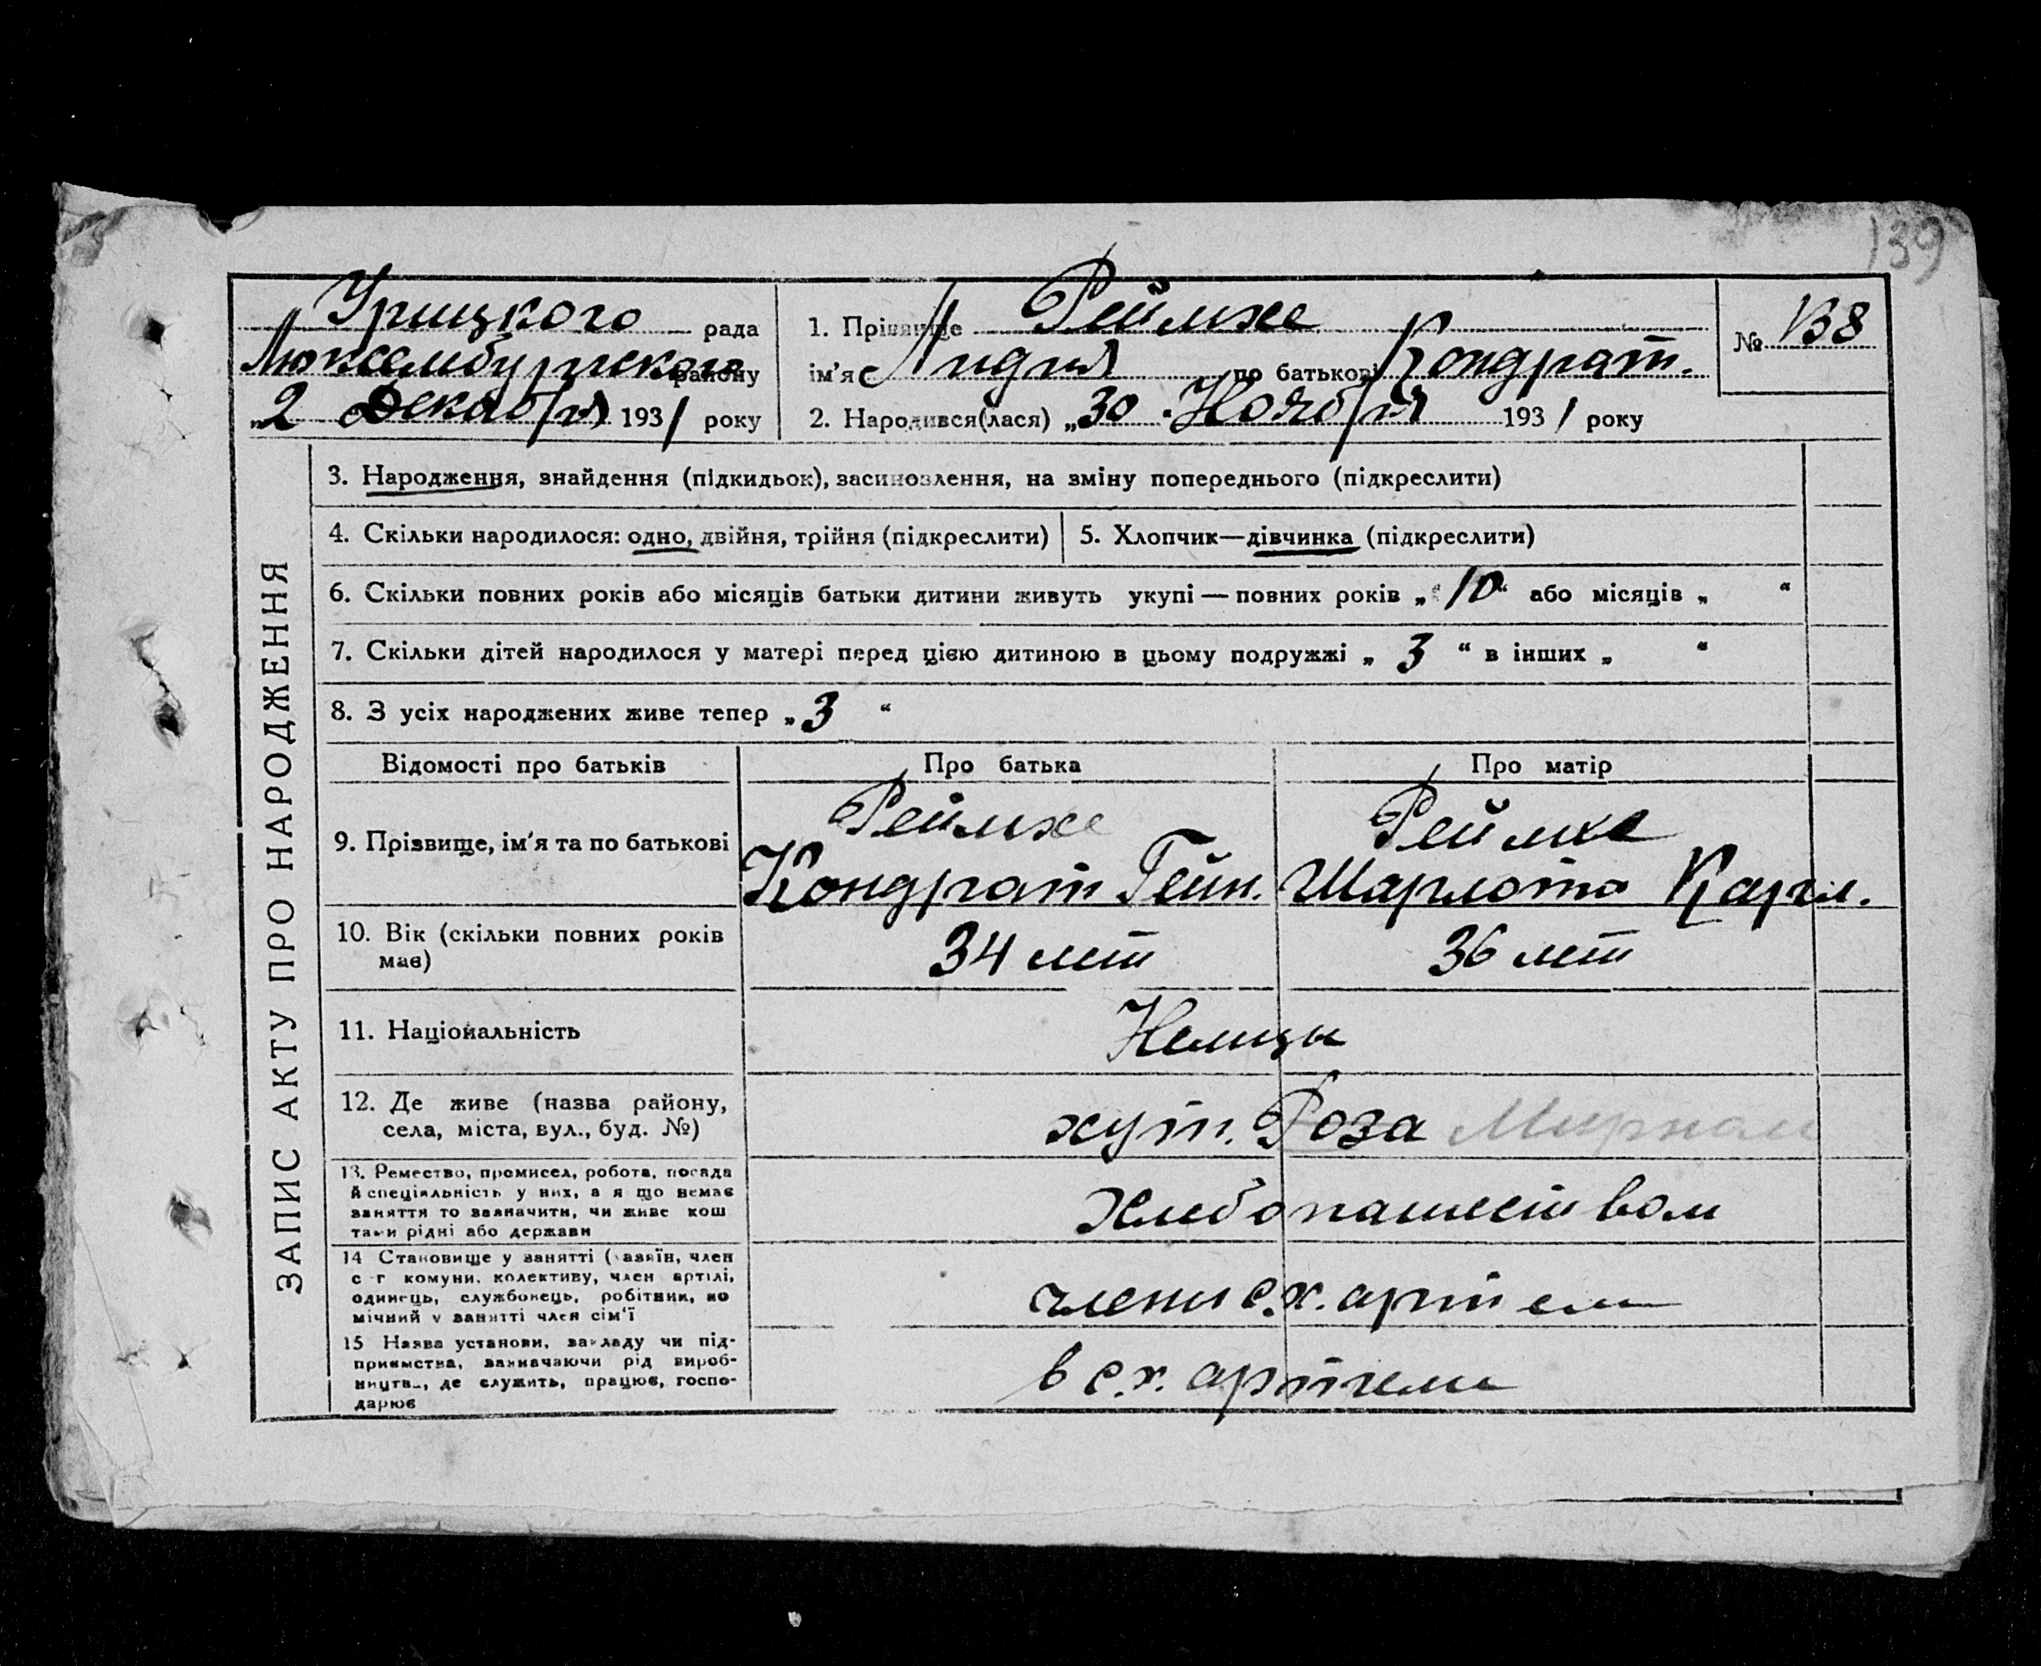 139
Урицкого рада
Люксембургского району
„2 Декабря 1931 року
1. Прізвище Реймхе
ім'я Лидия по батькові Кондрат.
2. Народився(лася) „30 Ноября 1931 року
№ 138
ЗАПИС АКТУ ПРО НАРОДЖЕННЯ
3. Народження, знайдення (підкидьок), засиновлення, на зміну попереднього (підкреслити)
4. Скільки народилося: одно, двійня, трійня (підкреслити)
5. Хлопчик—дівчинка (підкреслити)
6. Скільки повних років або місяців батьки дитини живуть укупі — повних років „10“ або місяців „ “
7. Скільки дітей народилося у матері перед цією дитиною в цьому подружжі „ 3 “ в інших „ “
8. З усіх народжених живе тепер „3 “
Відомості про батьків
Про батька
Про матір
9. Прізвище, ім'я та по батькові
Реймхе
Кондрат Гейн.
Реймхе
Шарлота Карл.
10. Вік (скільки повних років
має)
34 лет
36 лет
11. Національність
Немцы
12. Де живе (назва району,
села, міста, вул., буд. №)
хут. Роза
13. Ремество, промисел, робота, посада
й спеціяльність у них, а я що немає
заняття то зазначити, чи живе кош
тами рідні або держави
Хлебопашеством
14 Становище у занятті (хазяїн, член
с г комуни, колективу, член артілі,
одинець, службовець, робітник, по
мічний у занятті член сім'ї
члены с.х. артели
15 Назва установи, закладу чи під-
приємства, зазначаючи рід вироб-
ництва, де служить, працює, госпо-
дарює
в с.х. артели